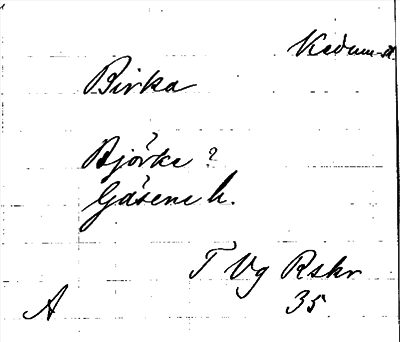 Kedum-a.
Birka
Björke ?
Gäsene h.
T Vg Rskr
A 35